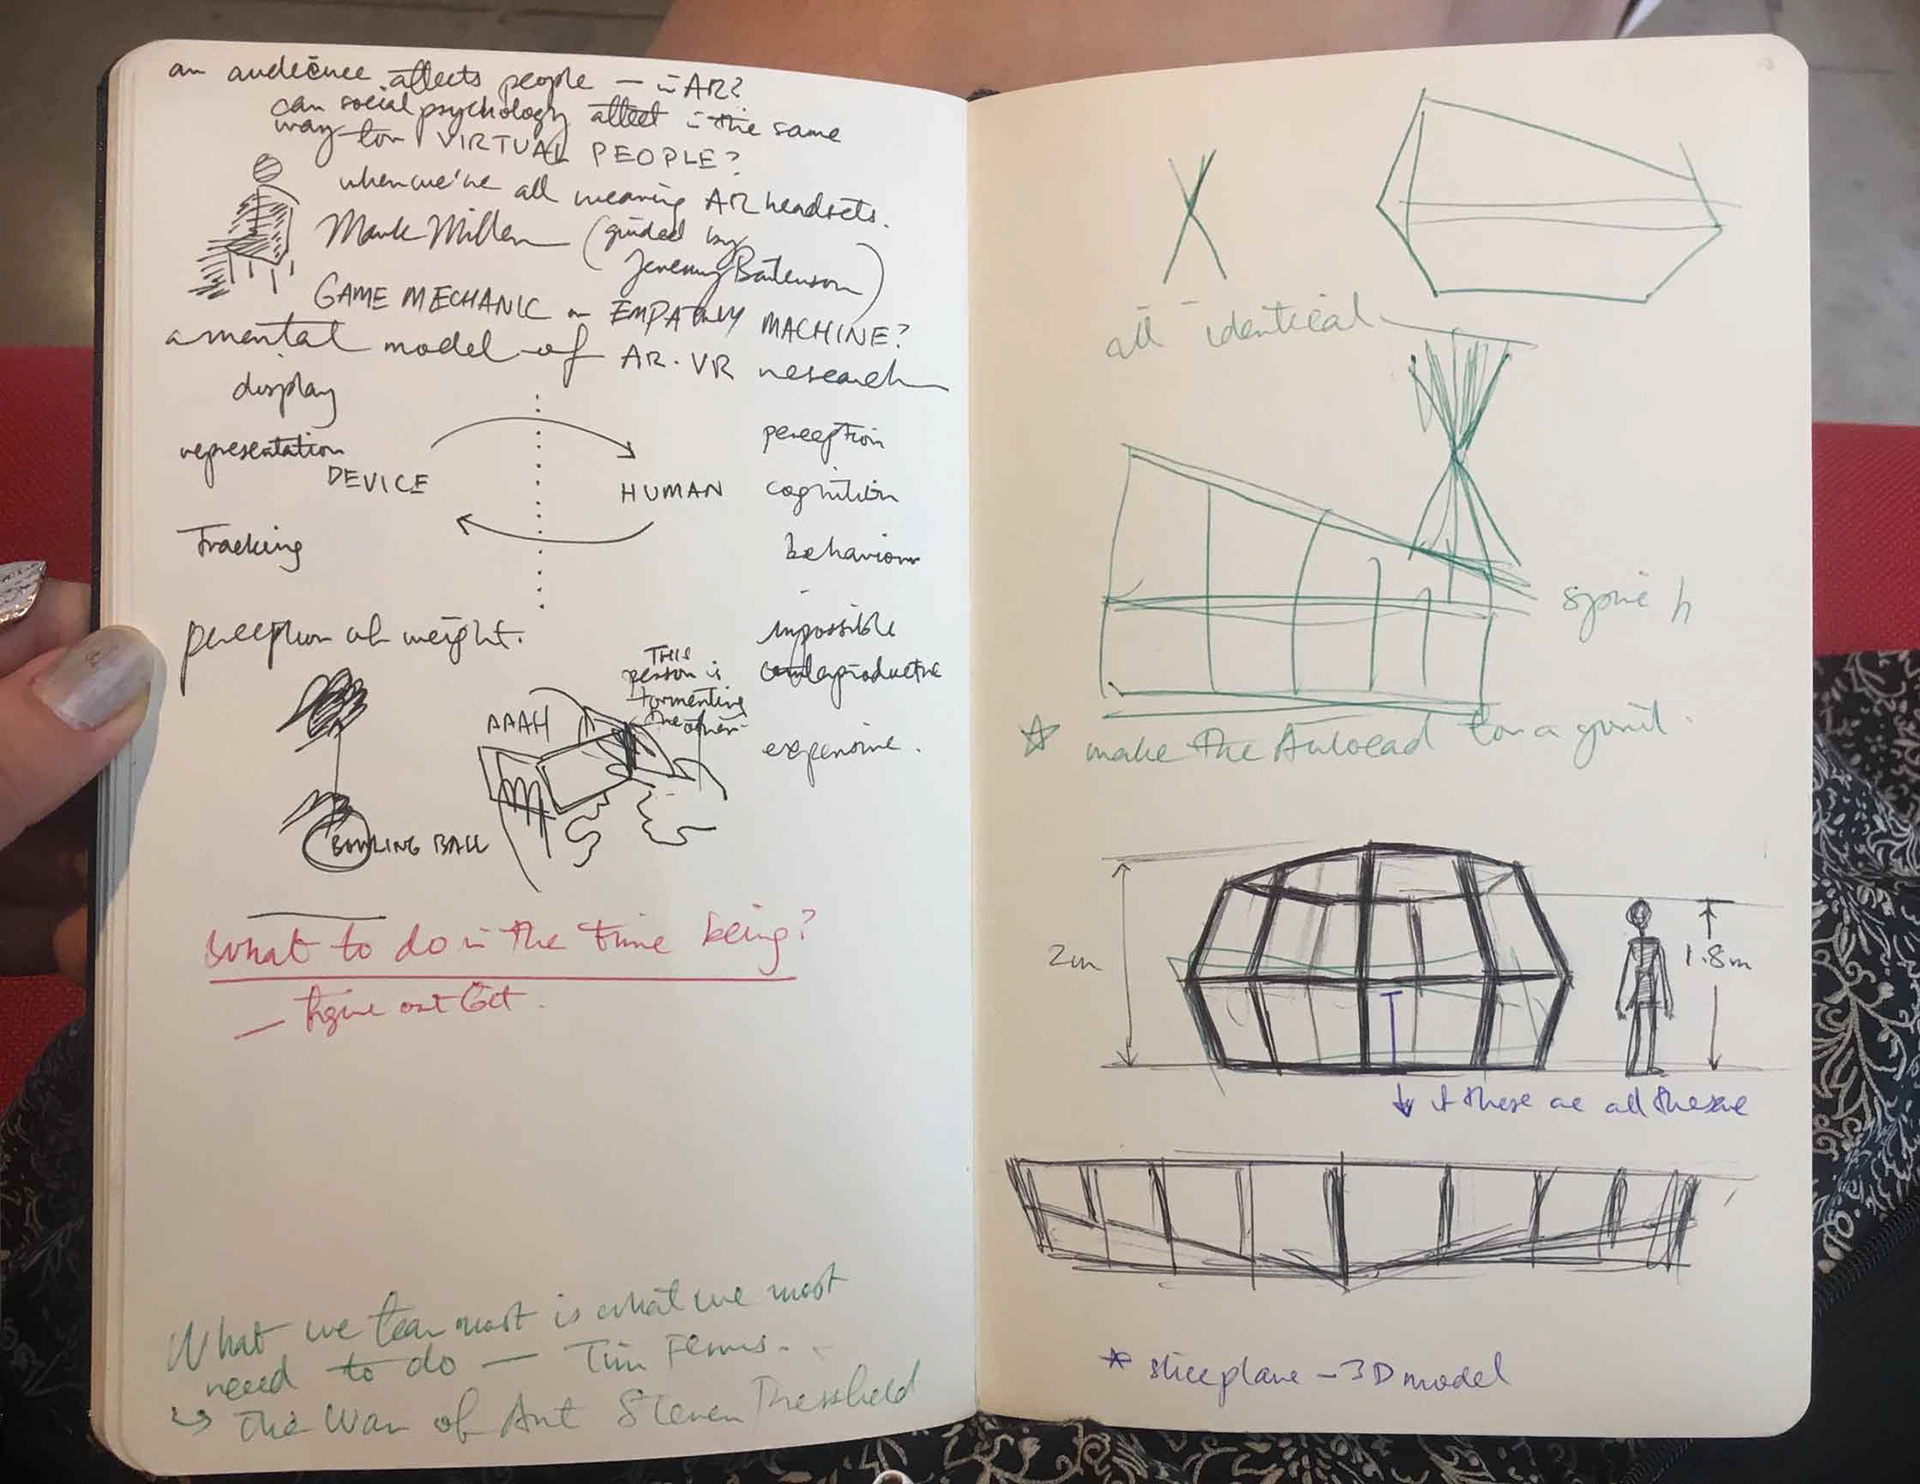 an audience affects people — in AR?
can social psychology affect in the same
way for VIRTUAL PEOPLE?
when we're all wearing AR headsets.
Mark Miller (guided by
Jeremy Bailenson)
GAME MECHANIC or EMPATHY MACHINE?
a mental model of AR·VR research
display
representation
DEVICE
Tracking
HUMAN
perception
cognition
behaviour
impossible
counterproductive
expensive.
perception of weight.
THIS
person is
tormenting
the other
AAAH
BOWLING BALL
What to do in the time being?
— figure out
What we fear most is what we most
need to do — Tim Ferriss.
↳ The War of Art Steven
all identical
☆ make the Autocad for a
2m
1.8m
↓ if these are all the same
* slice plane – 3D model